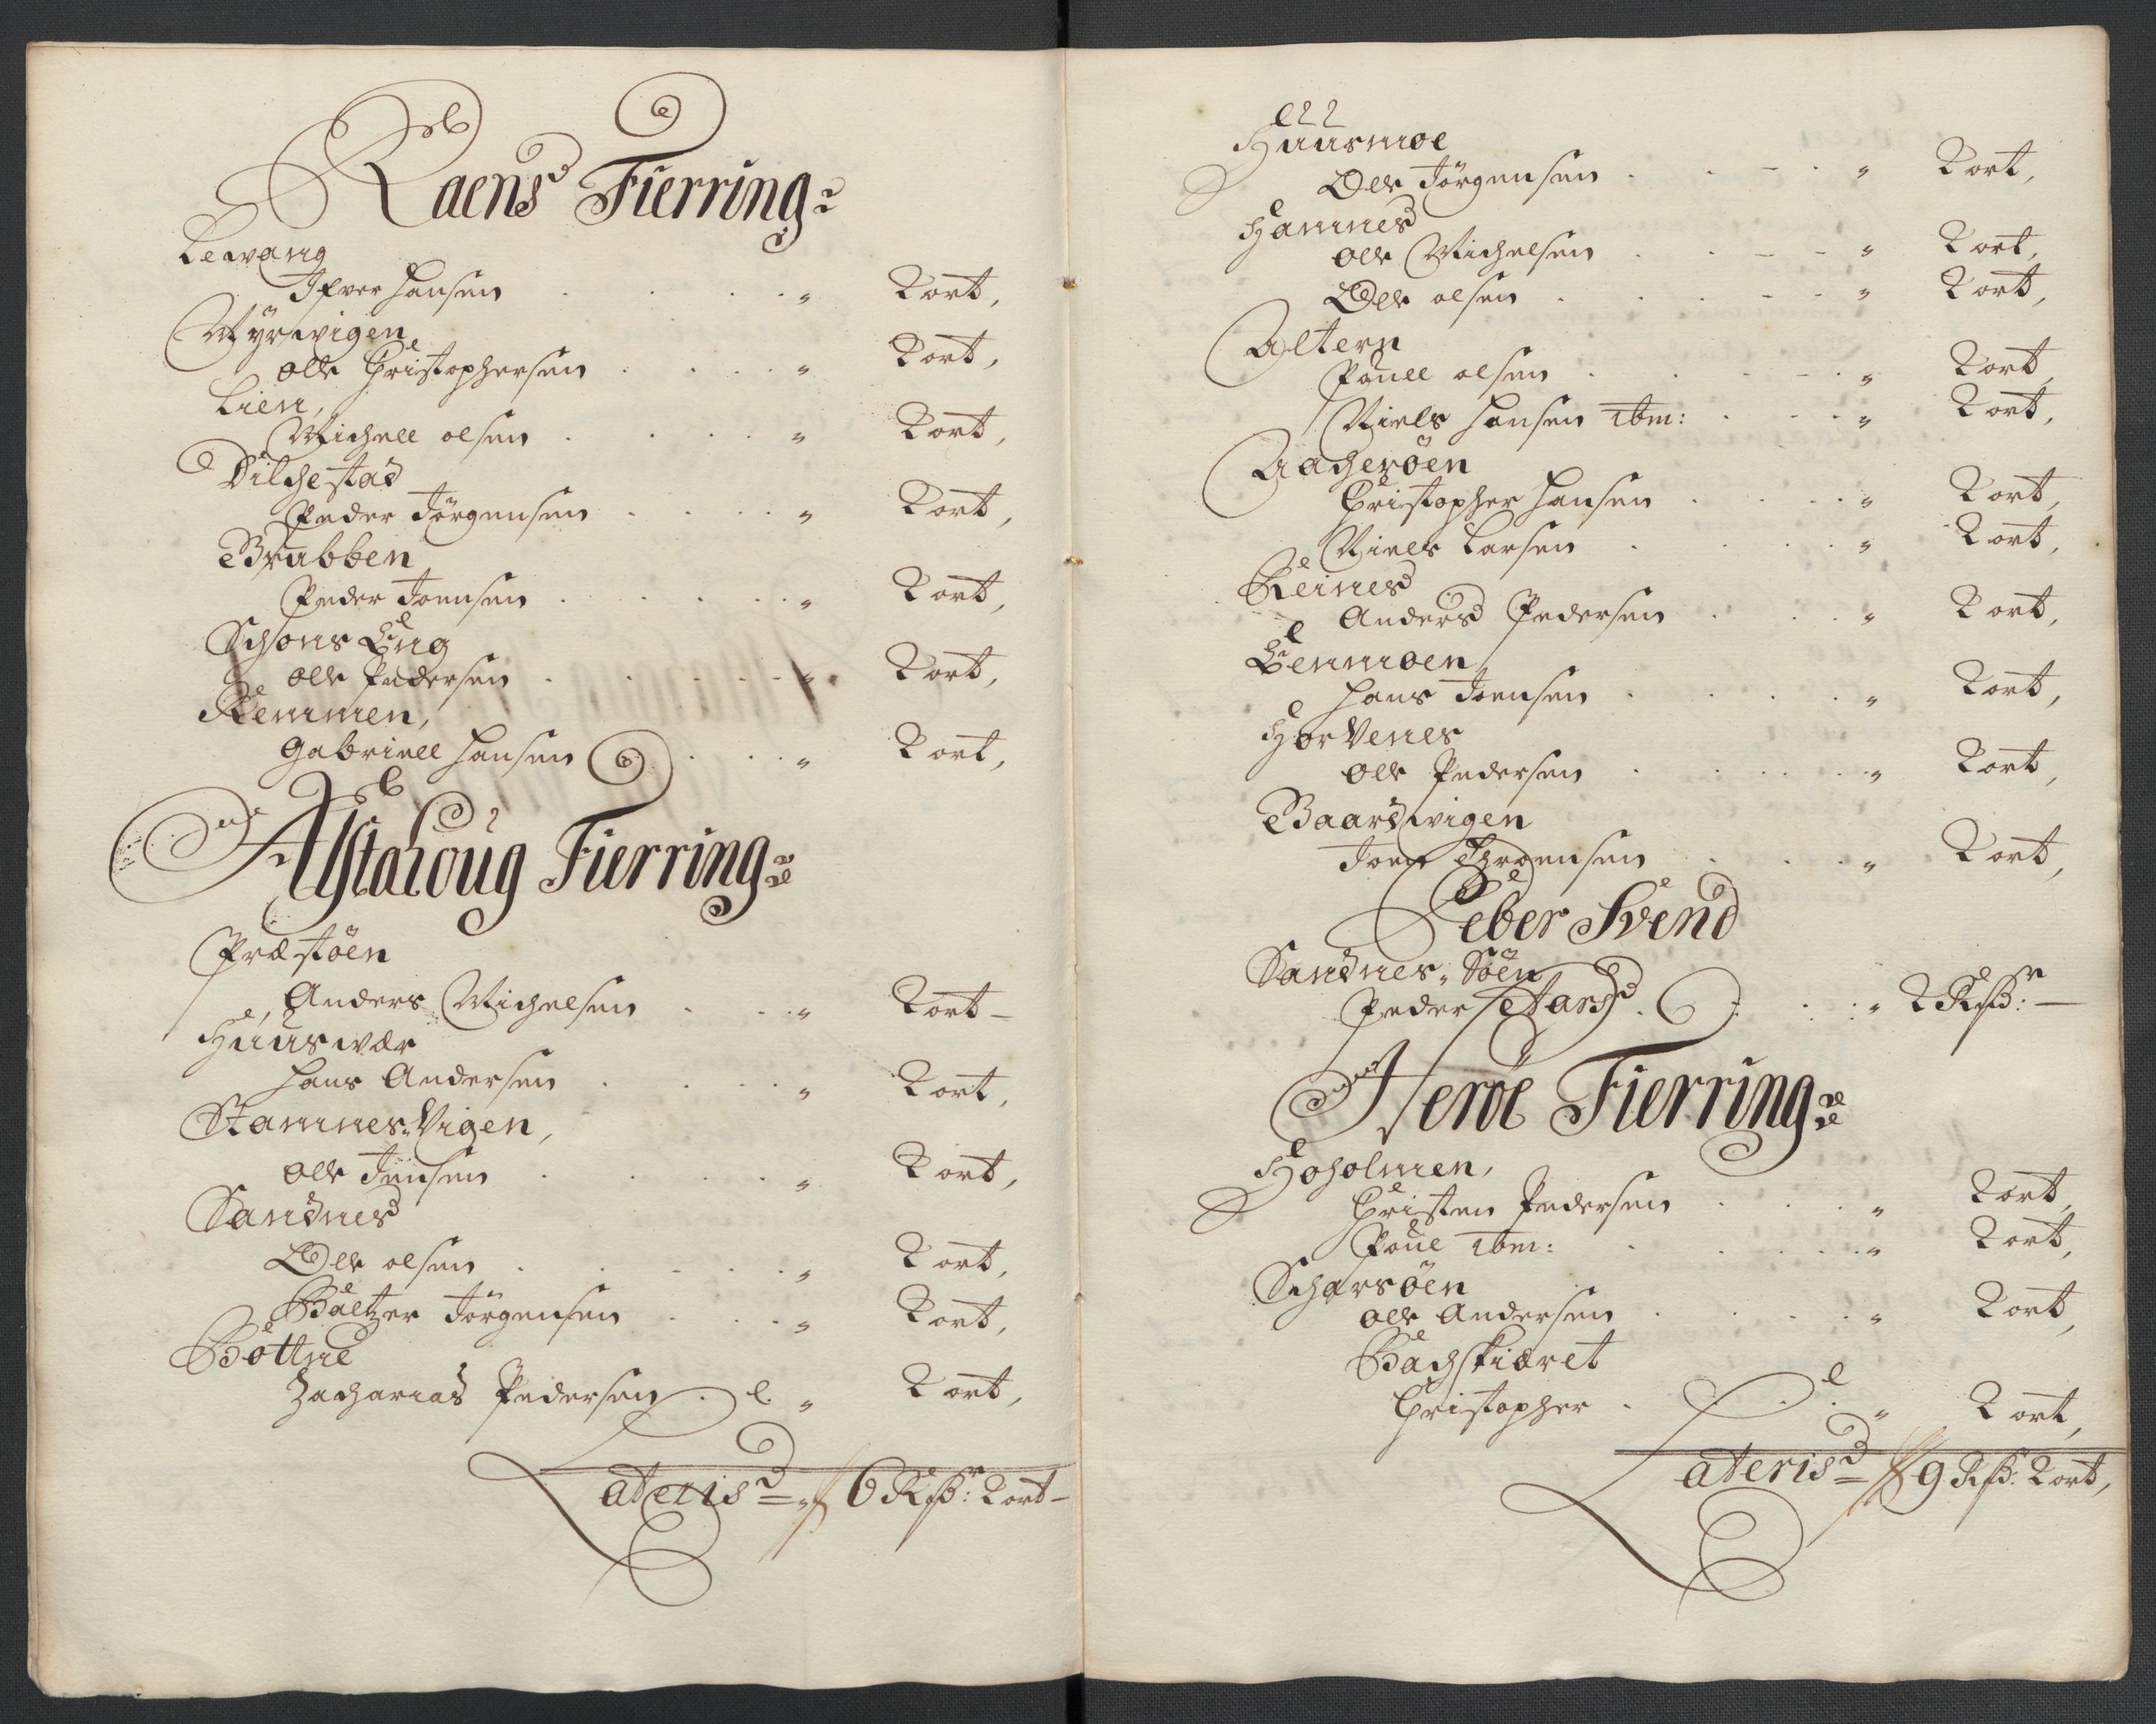 Raens Fierring
Lewang
Ifver Hansen . . . . „ 2 ort,
Myrwigen
Olle Christophersen . . . . „ 2 ort,
Lien,
Michell olsen . . . . „ 2 ort,
Dilchestad
Peder Jörgensen . . . . „ 2 ort,
Brubben
Peder Joensen . . . . „ 2 ort,
Schons Eng
Olle Pedersen . . . . „ 2 ort,
Remmen,
Gabriell Hansen . . . „ 2 ort,
Alstahoug Fierring
Præstöen
Anders Michelsen . . . „ 2 ort –
Huuswær
Hans Andersen . . . . „ 2 ort,
Stamnes Vigen,
Olle Jensen . . . . „ 2 ort,
Sandnes
Olle olsen . . . . „ 2 ort,
Baltzer Jörgensen . . . „ 2 ort,
Bottne
Zacharias Pedersen . . „ 2 ort,
Lateris = „ 6 Rdr: 2 ort –
Huusmoe
Olle Jörgensen . . . . „ 2 ort,
Hamnes
Olle Michelsen . . . . „ 2 ort,
Olle olsen . . . . „ 2 ort,
Altern
Pouell olsen . . . . „ 2 ort,
Niels Hansen ibm: . . . „ 2 ort,
Aacheröen
Christopher Hansen . . . „ 2 ort,
Niels Larsen . . . . „ 2 ort,
Reines
Anders Pedersen . . . „ 2 ort,
Lemmoen
Hans Joensen . . . . „ 2 ort,
Horvenes
Olle Pedersen . . . . „ 2 ort,
Baardwigen
Joen Throensen . . . „ 2 ort,
Leber Svend
Sandnes Söen
Peder . . . „ 2 Rdr: –
Heröe Fierring
Hoholmen,
Christen Pedersen . . . „ 2 ort,
Poüe ibm: . . . . „ 2 ort,
Scharsöen
Olle Andersen . . . . „ 2 ort,
Bachskiæret
Christopher . . . „ 2 ort,
Lateris = 9 Rdr: 2 ort,